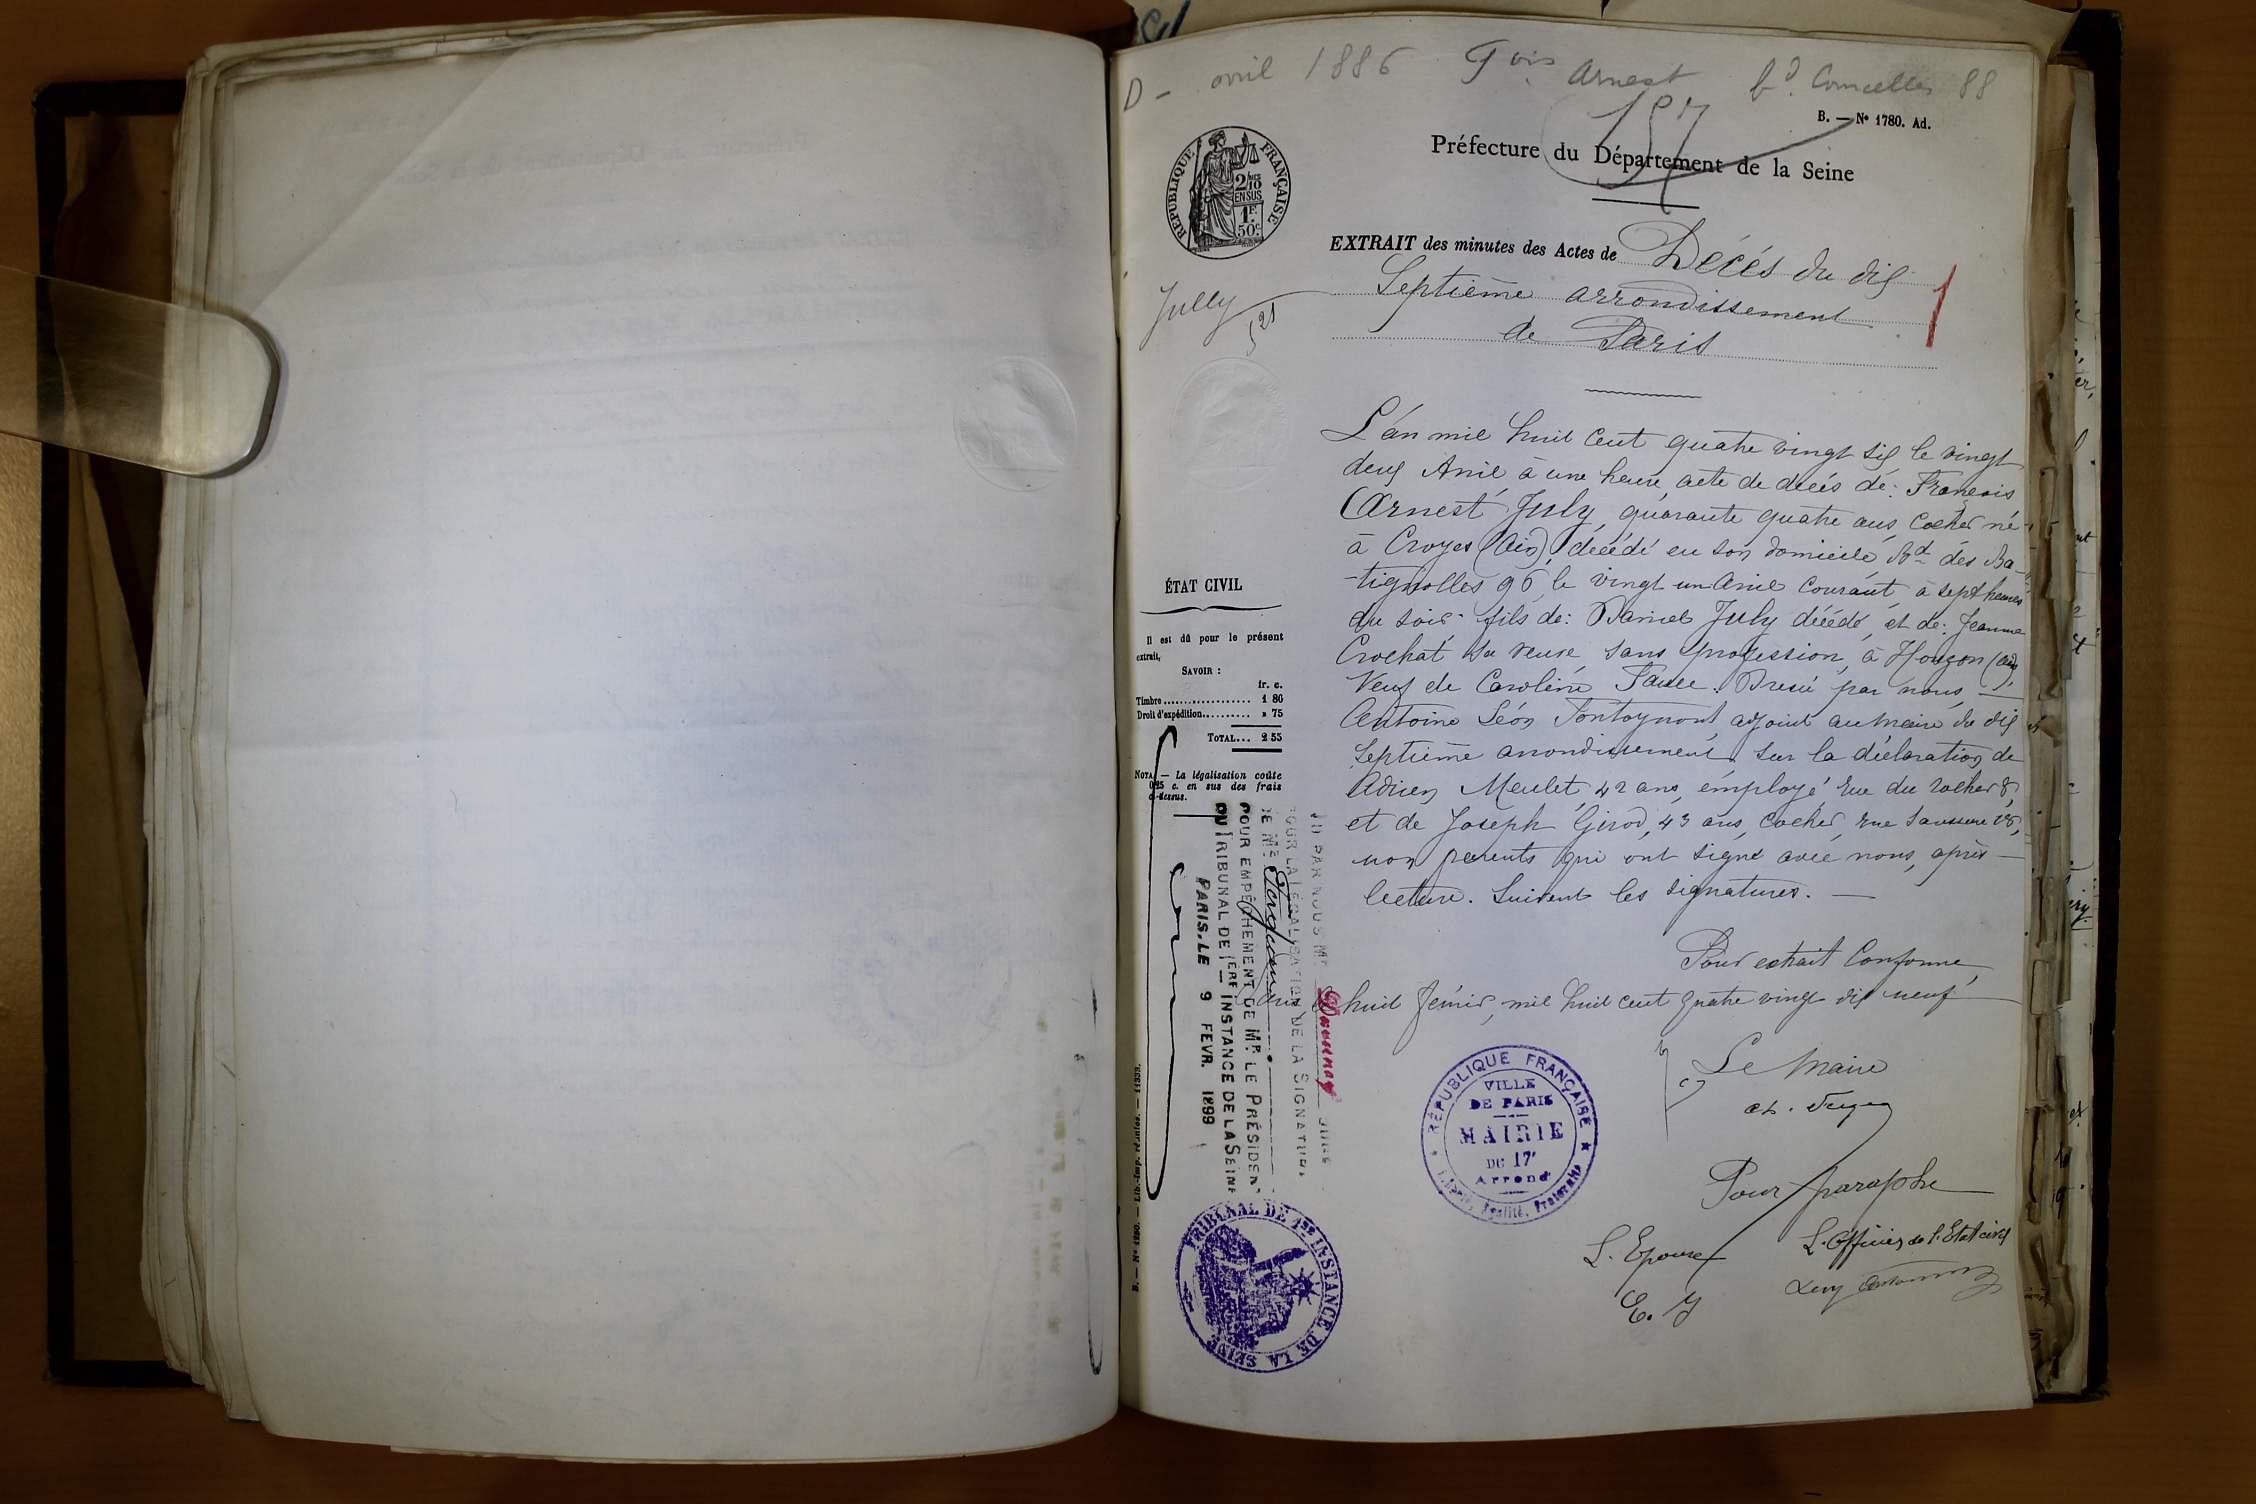 D - avril 1886 Fois Arnest bd Courcelles 88
157
B. — No 1780. Ad.
RÉPUBLIQUE FRANÇAISE
2/10
EN SUS
1F.
50c.
Préfecture du Département de la Seine
EXTRAIT des minutes des Actes de Décés du dix
Septième arrondissement
de Paris
1
Jully
521
L'an mil huit cent quatre vingt six le vingt
deux Avril à une heure, acte de décés de: François
Arnest July, quarante quatre ans, cocher né
à Croyes (Ain), décédé en son domicile, Bd des Ba-
-tignolles 96, le vingt un Avril courant à sept heures
du soir fils de: Daniel July décédé, et de: Jeanne
Crochat sa veuve, sans profession, à Hougon (Ain),
Veuf de Caroline Dressé par nous, —
Antoine Léon adjoint au Maire du dix
Septième arrondissement sur la déclaration de
Adrien Meulet, 42 ans, employé rue du rocher 8,
et de Joseph Girod, 43 ans, cocher, rue Saussure
non parents qui ont signé avec nous, après —
lecture. Suivent les signatures. —
Pour extrait Conforme,
Paris, le huit Février, mil huit cent quatre vingt dix neuf
Le Maire
Pour paraphe
L. Epouse
E. J
L. Officier de l'Etat civil
ÉTAT CIVIL
Il est dû pour le présent
extrait,
SAVOIR :
fr. c.
Timbre.................. 1 80
Droit d'expédition.......... » 75
TOTAL... 2 55
NOTA. — La légalisation coûte
0,25 c. en sus des frais
ci-dessus.
PAR NOUS Mr Daunay JUGE
POUR LA LÉGALISATION DE LA SIGNATURE
DE Mr
POUR EMPÊCHEMENT DE MR. LE PRÉSIDENT
DU TRIBUNAL DE 1ERE INSTANCE DE LA SEINE
PARIS, LE 9 FEVR. 1899
RÉPUBLIQUE FRANÇAISE
VILLE
DE PARIS
MAIRIE
DU 17e
Arrondt
Liberté, Egalité, Fraternité
TRIBUNAL DE 1RE INSTANCE DE LA SEINE